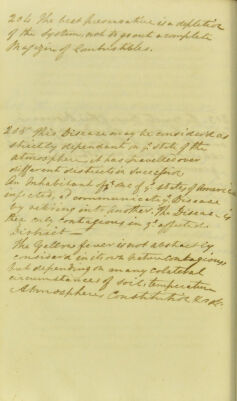 204 The best preservative is a depletion
of the System, not to go out a complete
Magazine of Combustibles.
205 This Disease may be considered as
strictly dependant on ye state of the
atmosphere, it has travelled over
different districts in succession
An Inhabitant of one of ye states of America
infected, communicating ye Disease
by going into another. The Disease is
then only contagious in ye affected
District —
The Yellow fever is not strictly
considered in its own nature contagious,
but depending on many colateral
circumstances of soil, temperature
Atmosphere, Constitution &c &c.